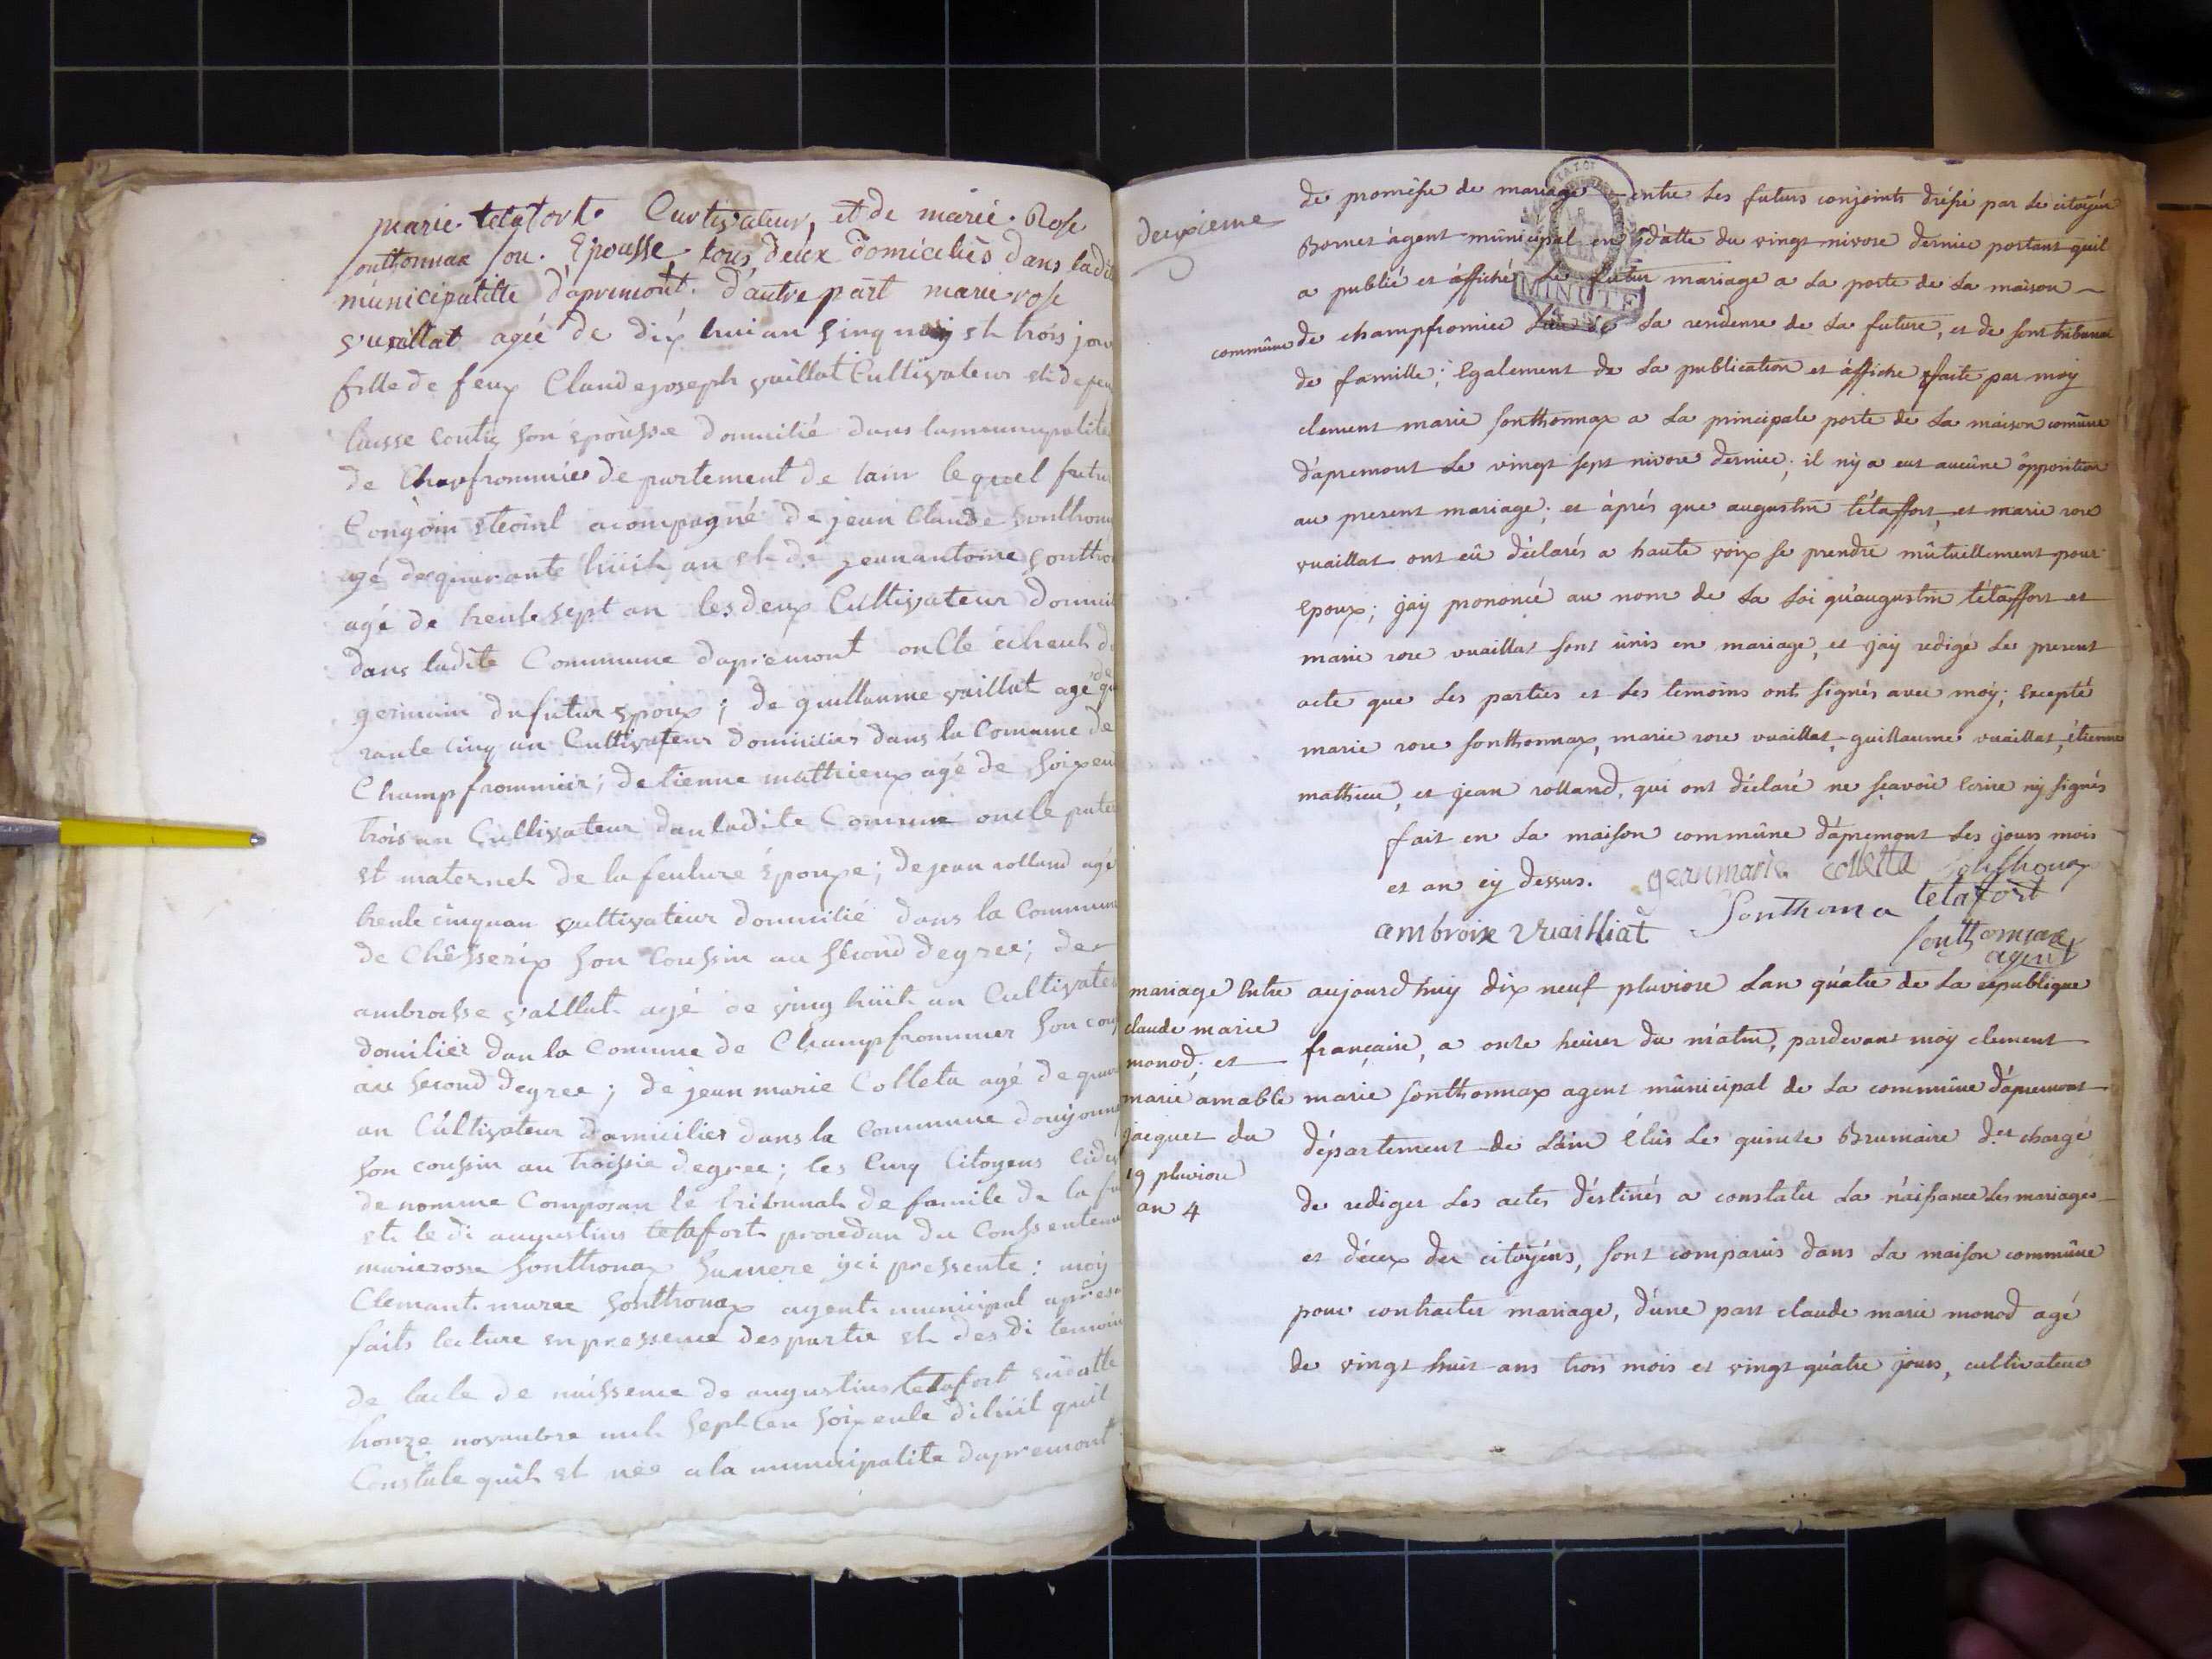 marie. tetafort. Curtivateur, et de marie. Rose
sonthonnax son. Epousse. tous deux domiceliés dans ladi
municipalitte d'apremont. d'autre part marie rose
vuaillat ageé de dix hui an sinq moy et trois jour
fille de feux Claude joseph vuillat Cultivateur et de feu
lausse son epousse domicilié dans la municipalite
de Chanfrommier departement de lain lequel futur
Congoin accompagné de jean Claude sonthon
agé de quarante huith an et de jeanantoine sontho
agé de trente sept an les deux Cultivateur domici
dans ladite Commune d'apremont oncle et
germain du futur epoux ; de guillaume vuillat agé de qua
rante cinq an Cultivateur domicilier dans la Comune de
Champfrommier ; detienne mathieux agé de soixen
trois an Cultivateur dan ladite Comune oncle pater
et maternel de la feuture épouxe ; de jean rolland agé
trente cinquan cultivateur domicilié dans la Commune
de Chésserix son Coussin au second degree ; de
ambroisse vaillat agé de ving huit an Cultivateu
domilier dan la Comune de Champfrommier son cou
au second degree ; de jean marie Colleta agé de quara
an Cultivateur domicilier dans la Commune douyonna
son coussin au troissie degree ; les Cinq Citoyens cides
de nomme Composan le tribunal de famile de la fu
et le di augustins tetafort procedan du Conssenteme
marierosse sonthonax samere ici pressente : moy
Clemant. marie sonthonax agent municipal apres a
faits lecture en pressence des partie et des di temoin
de lacte de naissence de augustins tetafort en datte
honze novanbre mil sept cen soixente dihuit quil
Constate quil et née a la municipalite d'apremont
deuxieme
de promesse de mariage entre les futurs conjoints dréssé par le citoyen
Bornet agent municipal en datte du vingt nivose dernier portant quil
a publié et affiché le futur mariage a la porte de la maison
commune de champfromier lieu de la residense de la future, et de sont tribunal
de famille ; Egalement de la publication et affiche faite par moy
clement marie sonthonnax a la principale porte de la maison comune
d'apremont le vingt sept nivose dernier ; il ny a eut aucune opposition
au present mariage ; et après que augustin tétaffort, et marie rose
vuaillat ont eû déclarés a haute voix se prendre mûtuellement pour
Epoux ; jaÿ prononcé au nom de la Loi qu'augustin tétaffort et
marie rose vuaillat sont ûnis en mariage, et jaÿ redigé le present
acte que les parties et les temoins ont signés avec moy ; Excepté
marie rose sonthonnax, marie rose vuaillat, guillaume vuaillat, étienne
mathieu, et jean rolland, qui ont déclaré ne sçavoir Ecrire ny signés
fait en la maison commune d'apremont les jours mois
et an cy dessus. jeanmarie colleta sonthonax
ambroix vuailliat sonthona tetafort
sonthonnax
agent
mariage Entre
claude marie
monod, et
marie amable
jacquet du
19 pluviose
an 4
aujourd'huy dix neuf pluviose Lan quatre de la république
française, a onze heures du matin, pardevant moy clement
marie sonthonnax agent municipal de la commune d'apremont
département de Lain Elûs le quinze Brumaire d.er chargé
de rediger les actes déstinés a constater la naissance les mariages
et décex des citoyens, sont comparus dans la maison commune
pour contracter mariage, d'une part claude marie monod agé
de vingt huit ans trois mois et vingt quatre jours, cultivateur
LA LOI
MINUTE